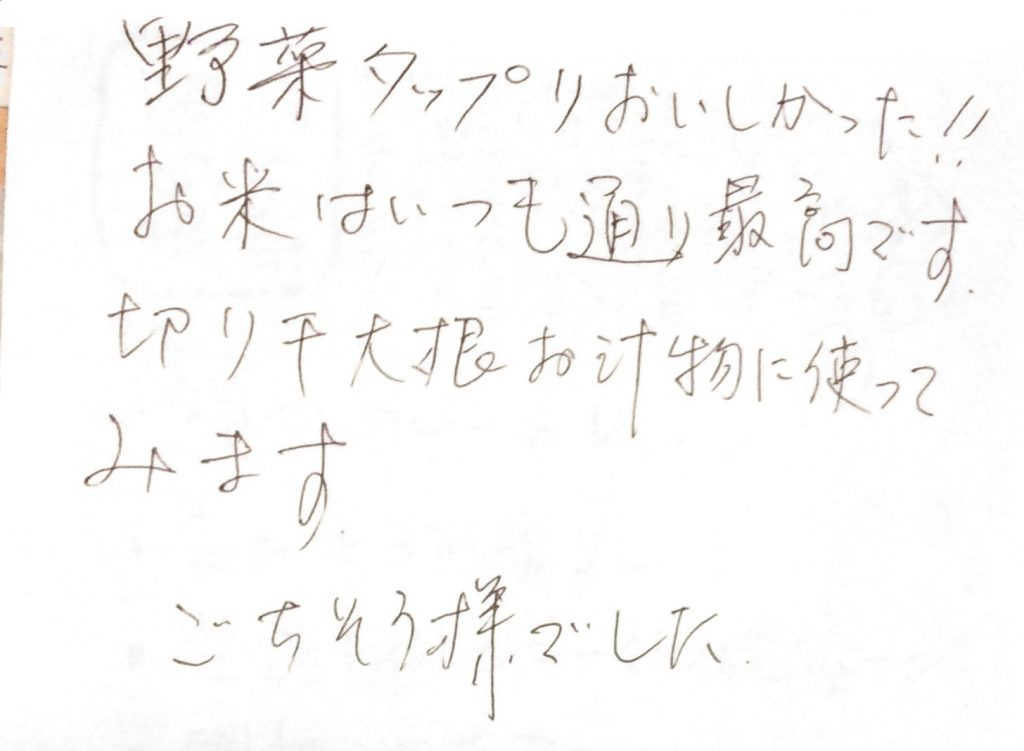 野菜タップリおいしかった!!
お米はいつも通り最高です.
切り干大根お汁物に使って
みます.
ごちそう様でした.